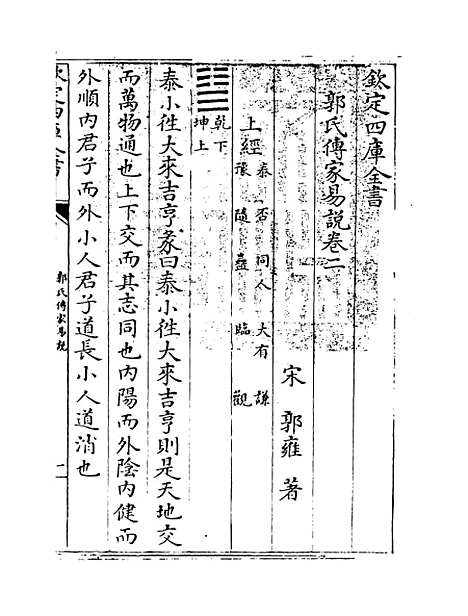 欽定四庫全書
郭氏傳家易說卷二
宋 郭雍 著
上經 泰 否 同人 大有 謙
豫 隨 蠱 臨 觀
乾下
坤上
泰小徃大來吉亨彖曰泰小徃大來吉亨則是天地交
而萬物通也上下交而其志同也內陽而外陰內健而
外順內君子而外小人君子道長小人道消也
欽定四庫全書
郭氏傳家易說